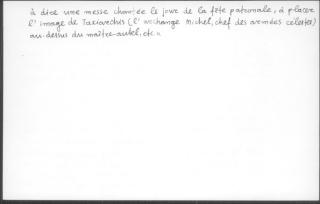 à dire une messe chantée le jour de la fête patronale, à placer
l'image de Taxiarchis (l'archange Michel, chef des armées célestes)
au-dessus du maître-autel, etc.»